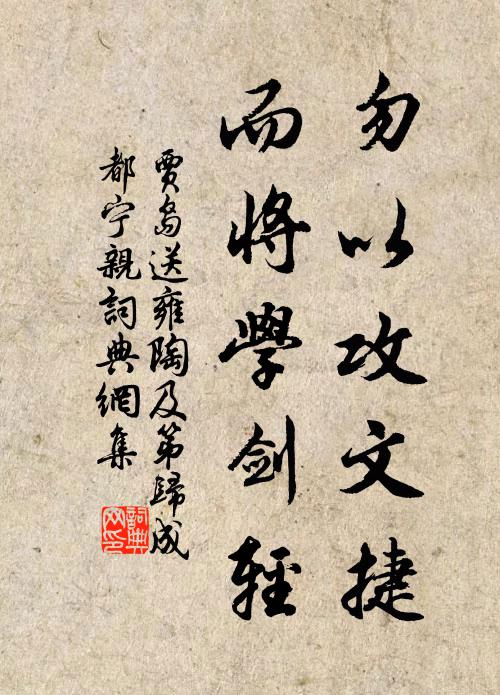 勿以攻文捷
而將學剑輕
賈島送雍陶及第歸成
都宁親詞典網集
詞典
网印